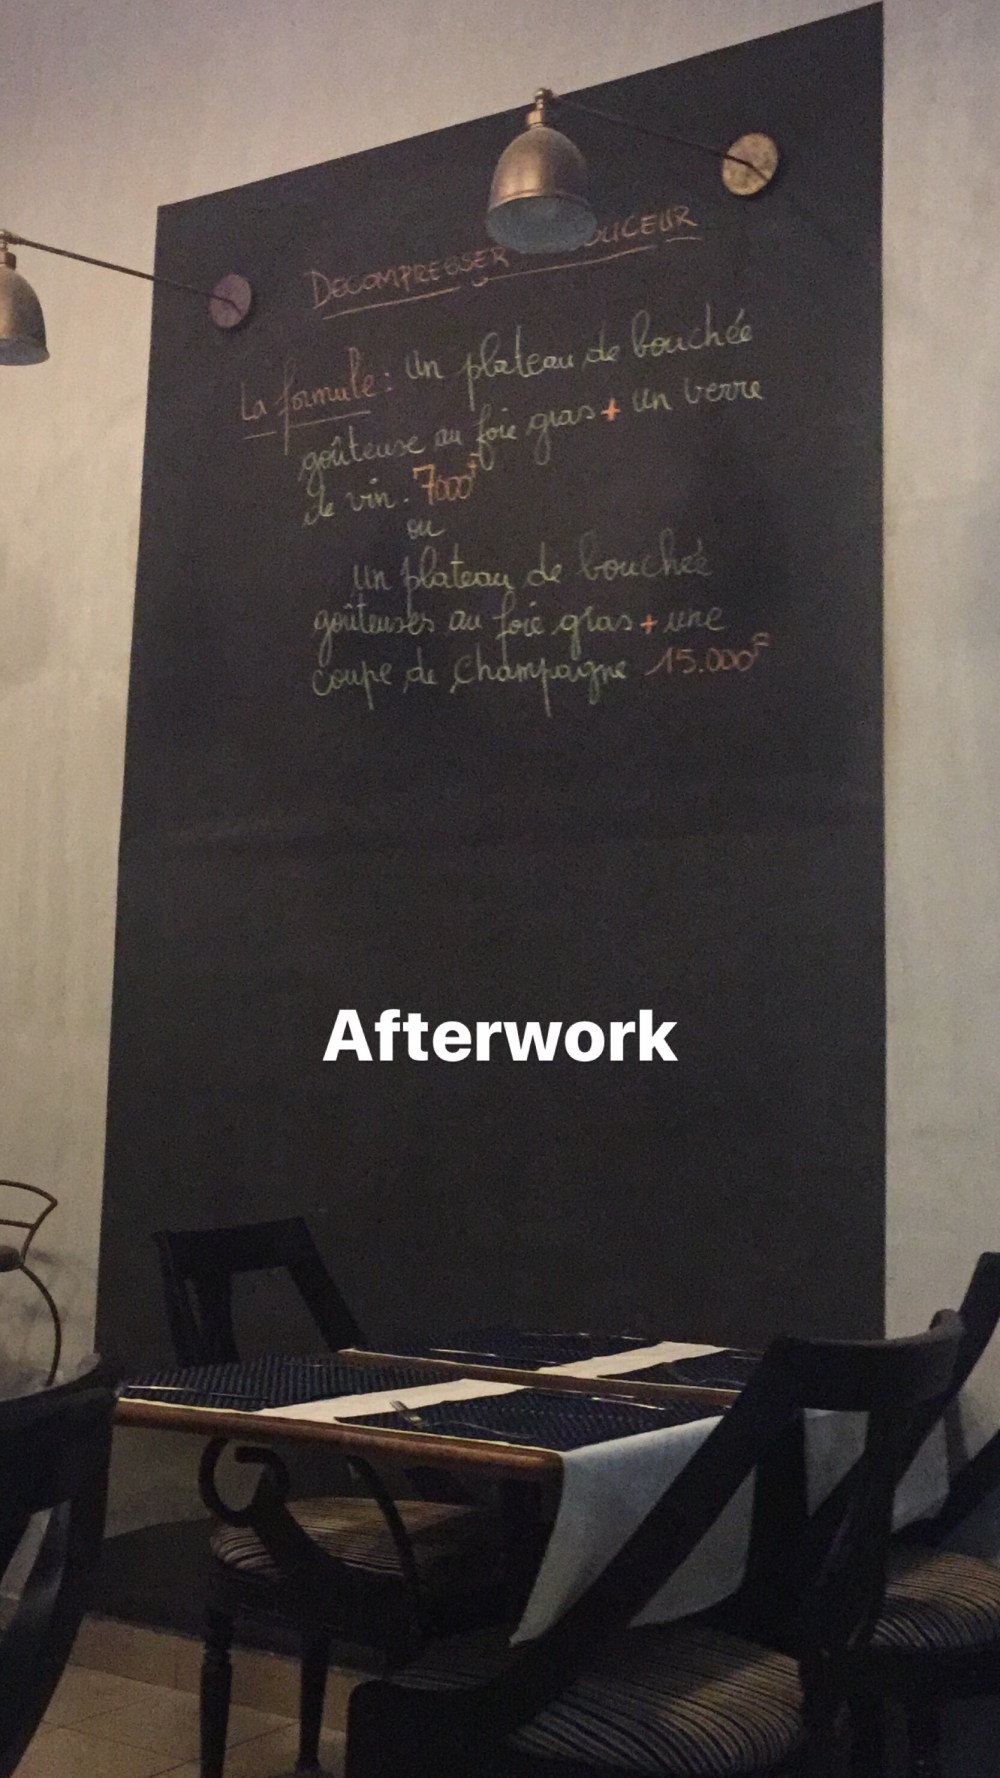 DECOMPRESSER OUCEUR
La formule : Un plateau de bouchée
goûteuse au foie gras + un verre
de vin. 7000F
ou
Un plateau de bouchée
goûteuses au foie gras + une
coupe de champagne 15.000F
Afterwork